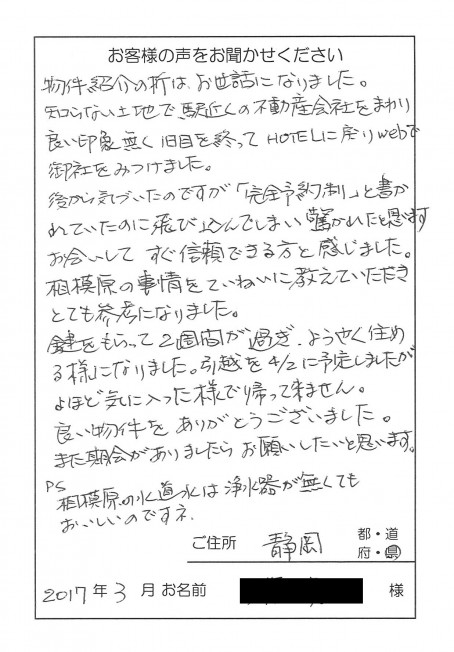 お客様の声をお聞かせください
物件紹介の折は、お世話になりました。
知らない土地で駅近くの不動産会社をまわり
良い印象無く1日目を終ってHOTELに戻りwebで
御社をみつけました。
後から気づいたのですが「完全予約制」と書か
れていたのに飛び込んでしまい驚かれたと思います
お会いしてすぐ信頼できる方と感じました。
相模原の事情をていねいに教えていただき
とても参考になりました。
鍵をもらって2週間が過ぎ、ようやく住め
る様になりました。引越を4/2に予定しましたが
よほど気に入った様で帰って来ません。
良い物件をありがとうございました。
また機会がありましたらお願いしたいと思います。
PS
相模原の水道水は浄水器が無くても
おいしいのですネ.
ご住所 静岡 都・道
府・県
2017年3月 お名前 様